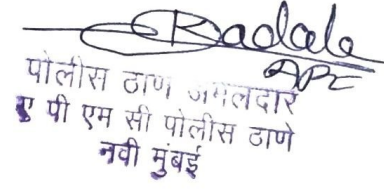 Badale
APC
पोलीस ठाणे अंमलदार
ए पी एम सी पोलीस ठाणे
नवी मुंबई